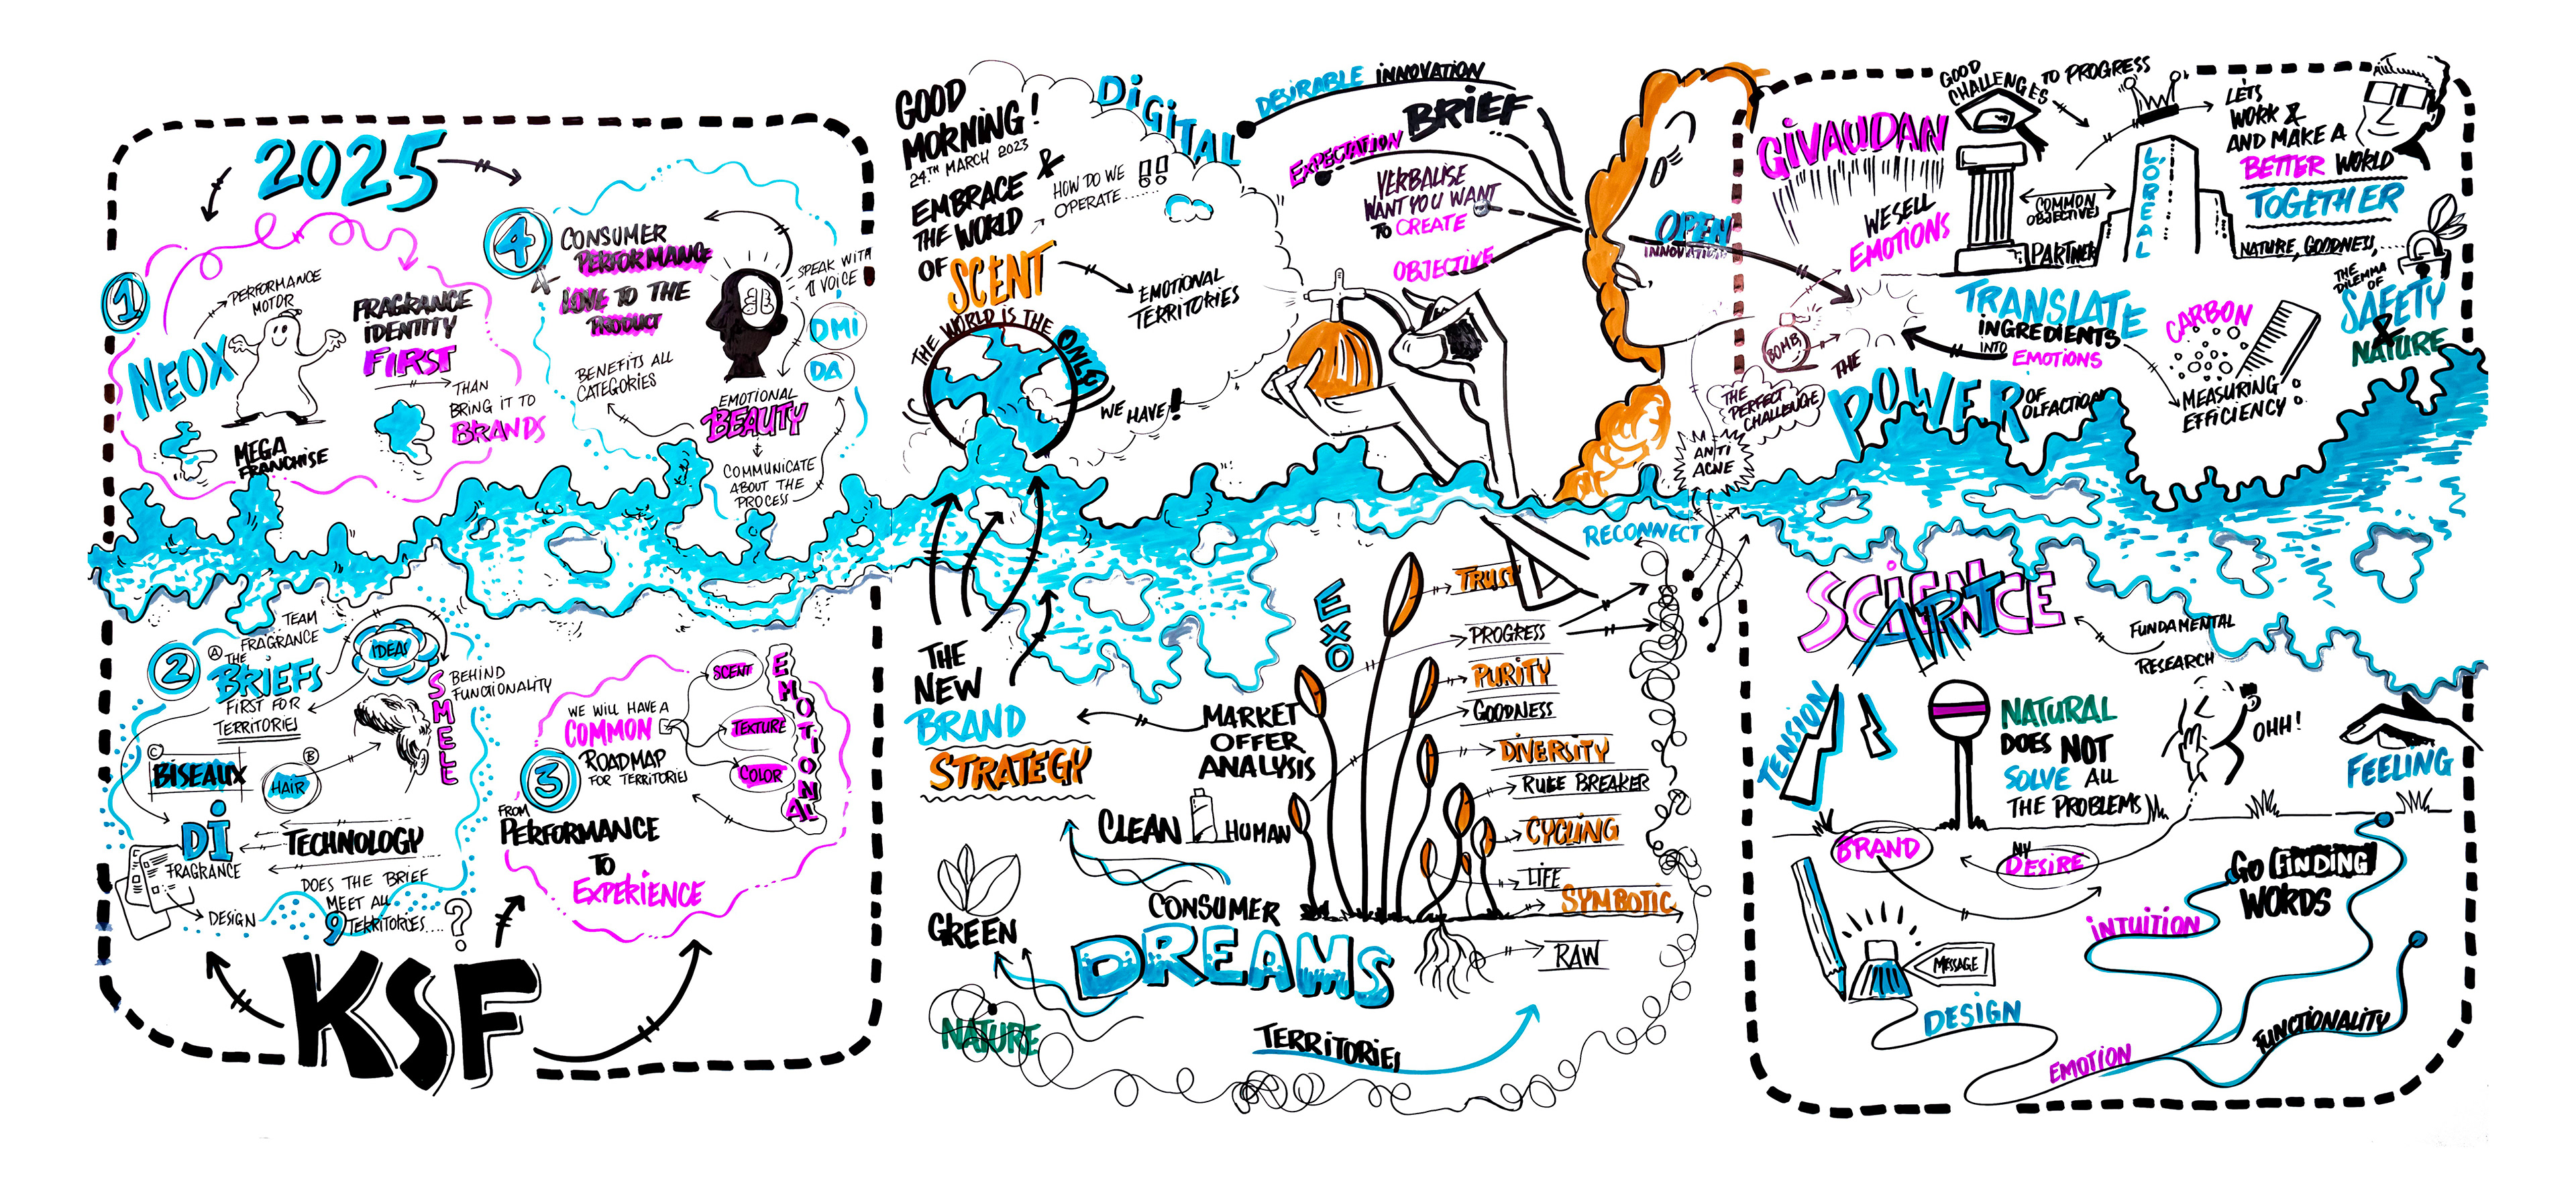 2025
1
NEOX
PERFORMANCE
MOTOR
MEGA
FRANCHISE
FRAGRANCE
IDENTITY
FIRST
THAN
BRING IT TO
BRANDS
4
CONSUMER
PERFORMANCE
LINK TO THE
PRODUCT
BENEFITS ALL
CATEGORIES
SPEAK WITH
1 VOICE
DMI
DA
EMOTIONAL
BEAUTY
COMMUNICATE
ABOUT THE
PROCESS
2
A
TEAM
FRAGRANCE
THE
BRIEFS
FIRST FOR
TERRITORIES
IDEAS
SMELL
BEHIND
FUNCTIONALITY
C
BISEAUX
B
HAIR
DI
FRAGRANCE
TECHNOLOGY
DESIGN
DOES THE BRIEF
MEET ALL
9 TERRITORIES....?
3
WE WILL HAVE A
COMMON
ROADMAP
FOR TERRITORIES
SCENT
TEXTURE
COLOR
EMOTIONAL
FROM
PERFORMANCE
TO
EXPERIENCE
KSF
GOOD
MORNING!
24.TH MARCH 2023
&
EMBRACE
THE WORLD
OF SCENT
HOW DO WE
OPERATE.....
!!
DIGITAL
EMOTIONAL
TERRITORIES
THE WORLD IS THE
ONLY
WE HAVE!
DESIRABLE INNOVATION
BRIEF
EXPECTATION
VERBALISE
WANT YOU WANT
TO CREATE
OBJECTIVE
OPEN
INNOVATION
RECONNECT
THE
NEW
BRAND
STRATEGY
MARKET
OFFER
ANALYSIS
CLEAN
HUMAN
GREEN
NATURE
CONSUMER
DREAMS
TERRITORIES
EXO
TRUST
PROGRESS
PURITY
GOODNESS
DIVERSITY
RULE BREAKER
CYCLING
LIFE
SYMBOTIC
RAW
GIVAUDAN
WE SELL
EMOTIONS
GOOD
CHALLENGES
TO PROGRESS
COMMON
OBJECTIVES
PARTNER
L'ORÉAL
LETS
WORK &
AND MAKE A
BETTER WORLD
TOGETHER
NATURE, GOODNESS,....
THE
DILEMMA
OF
SAFETY
&
NATURE
BOMB
THE
PERFECT
CHALLENGE
ANTI
ACNE
TRANSLATE
INGREDIENTS
INTO
EMOTIONS
THE
POWER
OF
OLFACTION
CARBON
MEASURING
EFFICIENCY
SCIENCE
ART
FUNDAMENTAL
RESEARCH
TENSION
NATURAL
DOES NOT
SOLVE ALL
THE PROBLEMS
OHH!
FEELING
BRAND
MY
DESIRE
GO FINDING
WORDS
MESSAGE
DESIGN
INTUITION
EMOTION
FUNCTIONALITY